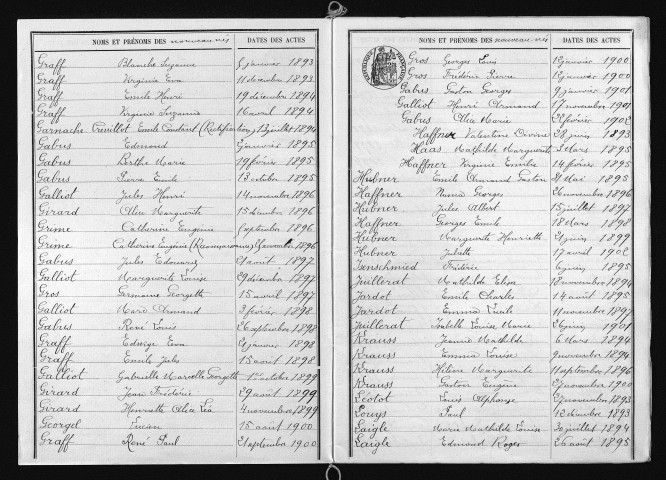 NOMS ET PRÉNOMS DES nouveau-nés DATES DES ACTES
Graff Blanche Suzanne 5 janvier 1893
Graff Virginie Eva 11 décembre 1893
Graff Emile Henri 19 décembre 1894
Graff Virginie Suzanne 16 avril 1894
Garnache Creuillot Emile Constant (Rectification) 13 juillet 1894
Gabus Edmond janvier 1895
Gabus Berthe Marie 19 février 1895
Gabus Pierre Emile 13 octobre 1895
Galliot Jules Henri 14 novembre 1896
Girard Alice Marguerite 15 décembre 1896
Grime Catherine Eugénie septembre 1896
Grime Catherine Eugénie (Reconnaissance) novembre 1896
Gabus Jules Edouard août 1897
Galliot Marguerite Louise 29 décembre 1897
Gros Germaine Georgette 15 avril 1897
Galliot Armand 3 février 1898
Gabus René Louis 26 septembre 1898
Graff Edwige Eva 21 janvier 1898
Graff Emile Jules 15 août 1898
Galliot Gabrielle Marcelle Georgette 1er octobre 1899
Girard Jean Frédéric 29 août 1899
Girard Henriette Alice Léa 4 novembre 1899
Georgel Lucien 15 août 1900
Graff René Paul 21 septembre 1900
NOMS ET PRÉNOMS DES nouveau-nés DATES DES ACTES
Gros Georges Louis janvier 1900
Gros Frédéric Pierre janvier 1900
Gabus Gaston Georges 9 janvier 1901
Galliot Henri Armand 17 novembre 1901
Gabus Alice Marie février 1902
Haffner Valentine 28 juin 1893
Haas Mathilde Marguerite 3 mars 1895
Haffner Virginie Emilie 14 février 1895
Hubner Emile Armand Gaston 21 mai 1895
Haffner Numa Georges 26 novembre 1896
Hubner Jules Albert 15 juillet 1897
Haffner Georges Emile 18 mars 1898
Hubner Marguerite Henriette 21 juin 1899
Hubner Juliette 17 avril 1902
Isenschmied Frédéric janvier 1895
Juillerat Mathilde Elisa novembre 1894
Jardot Emile Charles 14 août 1895
Jardot Emma Lucile 11 novembre 1897
Juillerat Isabelle Louise Marie 26 janvier 1901
Krauss Jeanne Mathilde 6 mars 1894
Krauss Emma Louise 9 novembre 1894
Krauss Hélène Marguerite 11 septembre 1896
Krauss Gaston Eugène 27 novembre 1900
Léotot Louis Alphonse 27 novembre 1893
Louys Paul 12 décembre 1893
Laigle Marie Mathilde Louise 30 juillet 1894
Laigle Edmond Roger 26 août 1895